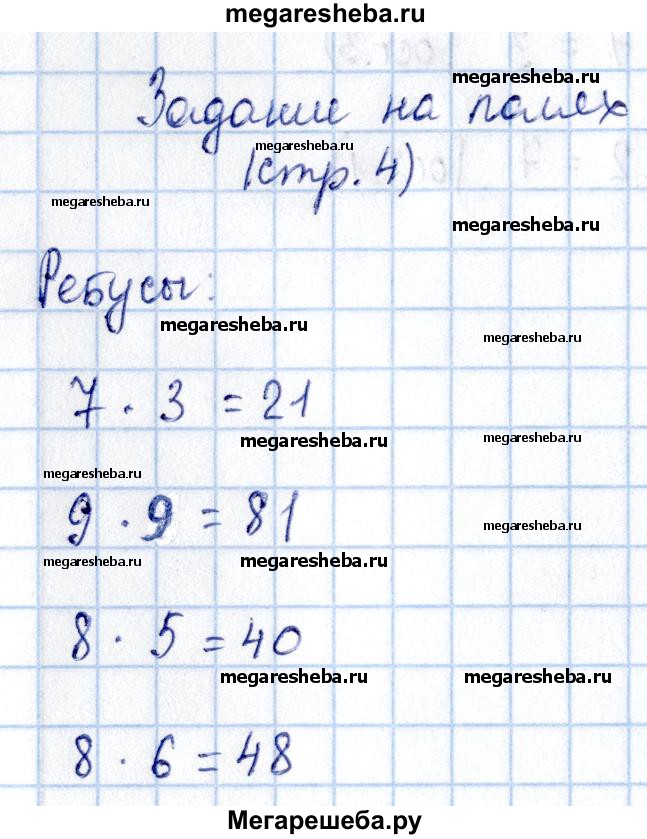 megaresheba.ru
megaresheba.ru
Задание на полях
megaresheba.ru
(стр. 4)
megaresheba.ru
megaresheba.ru
Ребусы:
megaresheba.ru
megaresheba.ru
7 · 3 = 21
megaresheba.ru
megaresheba.ru
megaresheba.ru
9 · 9 = 81
megaresheba.ru
megaresheba.ru
megaresheba.ru
8 · 5 = 40
megaresheba.ru
megaresheba.ru
8 · 6 = 48
Мегарешеба.ру